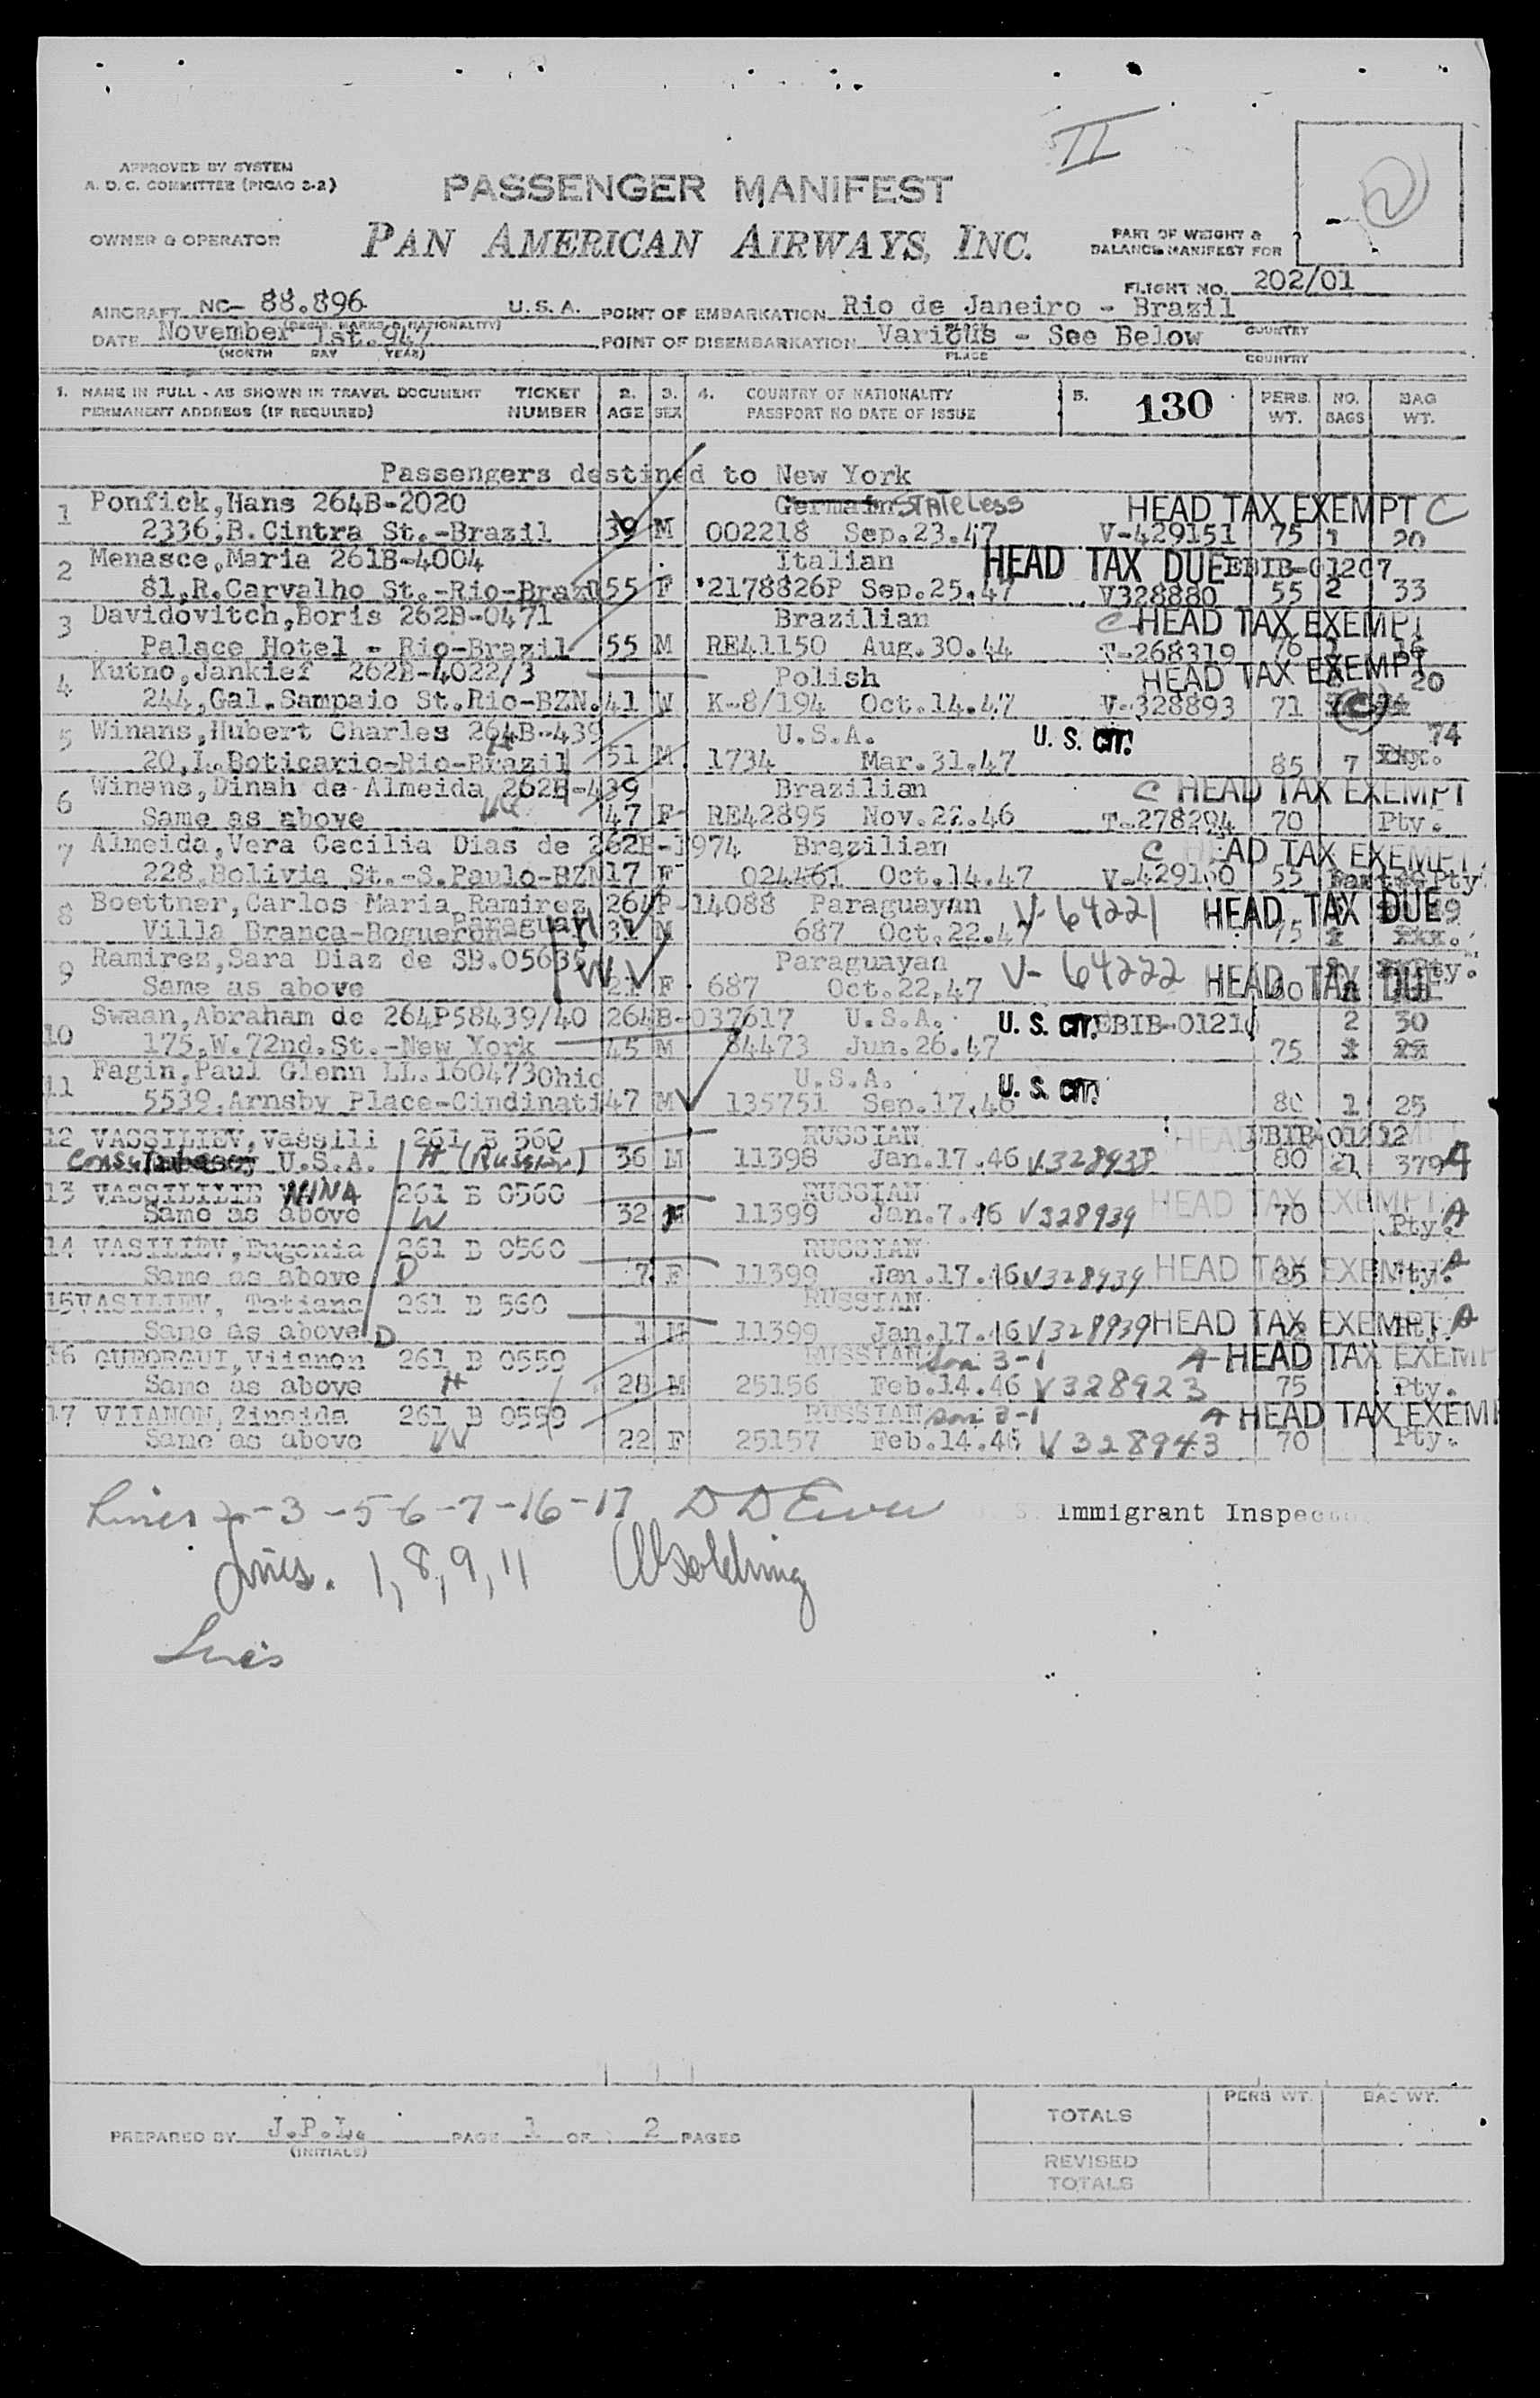 II
APPROVED BY SYSTEM
A. D. C. COMMITTEE (PICAO 2-2)
PASSENGER MANIFEST
OWNER & OPERATOR
PAN AMERICAN AIRWAYS, INC.
PART OF WEIGHT &
BALANCE MANIFEST FOR
2
FLIGHT NO. 202/01
AIRCRAFT NC- 88.896 U.S.A. POINT OF EMBARKATION Rio de Janeiro - Brazil
(REGIS. MARKS & NATIONALITY) PLACE COUNTRY
DATE November 1st.947 POINT OF DISEMBARKATION Various - See Below
(MONTH DAY YEAR) PLACE COUNTRY
1. NAME IN FULL - AS SHOWN IN TRAVEL DOCUMENT TICKET 2. 3. 4. COUNTRY OF NATIONALITY 5. 130 PERS. NO. BAG
PERMANENT ADDRESS (IF REQUIRED) NUMBER AGE SEX PASSPORT NO DATE OF ISSUE WT. BAGS WT.
Passengers destined to New York
1 Ponfick,Hans 264B-2020 German STATELESS HEAD TAX EXEMPT C
2336,B.Cintra St.-Brazil 39 M 002218 Sep.23.47 V-429151 75 1 20
2 Menasce,Maria 261B-4004 Italian HEAD TAX DUE EBIB-01207
81,R.Carvalho St.-Rio-Brazil 55 F 2178826P Sep.25.47 V328880 55 2 33
3 Davidovitch,Boris 262B-0471 Brazilian C HEAD TAX EXEMPT
Palace Hotel - Rio-Brazil 55 M RE41150 Aug.30.44 T-268319 76 1 16
4 Kutno,Jankief 262B-4022/3 Polish HEAD TAX EXEMPT 20
244,Gal.Sampaio St.Rio-BZN. 41 W K-8/194 Oct.14.47 V-328893 71 C
5 Winans,Hubert Charles 264B-439 U.S.A. U. S. CIT. 74
H
20,L.Boticario-Rio-Brazil 51 M 1734 Mar.31.47 85 7
6 Winans,Dinah de Almeida 262B-439 Brazilian C HEAD TAX EXEMPT
Same as above W 47 F RE42895 Nov.22.46 T-278294 70 Pty.
7 Almeida,Vera Cecilia Dias de 262B-1974 Brazilian C HEAD TAX EXEMPT
228,Bolivia St.-S.Paulo-BZN 17 F 024461 Oct.14.47 V-429160 55 Pty.
8 Boettner,Carlos Maria Ramirez 264P-14088 Paraguayan V-64221 HEAD TAX DUE
Villa Branca-Bogueron Paraguay H 31 M 687 Oct.22.47 75
9 Ramirez,Sara Diaz de SB.05635 Paraguayan V-64222 HEAD TAX DUE Pty.
Same as above W 21 F 687 Oct.22.47
10 Swaan,Abraham de 264P58439/40 264B-037617 U.S.A. U. S. CIT. EBIB-01210 2 30
175.W.72nd.St.-New York 45 M 84473 Jun.26.47 75
11 Fagin,Paul Glenn LL.160473 Ohio U.S.A. U. S. CIT.
5539,Arnsby Place-Cindinati 47 M 135751 Sep.17.46 80 1 25
12 VASSILIEV,Vassili 261 B 560 RUSSIAN HEAD TAX EXEMPT EBIB-01212
U.S.A. H (Russian) 36 M 11398 Jan.17.46 V328938 80 21 379 A
13 VASSILILIE NINA 261 B 0560 RUSSIAN HEAD TAX EXEMPT
Same as above W 32 F 11399 Jan.7.46 V328939 70 Pty. A
14 VASILIEV,Eugenia 261 B 0560 RUSSIAN
Same as above D 7 F 11399 Jan.17.46 V328939 HEAD TAX EXEMPT 25 Pty. A
15 VASILIEV, Tatiana 261 B 560 RUSSIAN
Same as above D 1 11399 Jan.17.46 V328939 HEAD TAX EXEMPT A
16 GUEORGUI,Viianon 261 B 0559 RUSSIAN 3-1 A HEAD TAX EXEMPT
Same as above H 28 M 25156 Feb.14.46 V328923 75 Pty.
17 VIIANON,Zinaida 261 B 0559 RUSSIAN 3-1 A HEAD TAX EXEM
Same as above W 22 F 25157 Feb.14.46 V328943 70 Pty.
Lines 2-3-5-6-7-16-17 Immigrant Inspector
Lines. 1,8,9,11
Lines
TOTALS PERS WT. BAG WT.
PREPARED BY J.P.L. PAGE 1 OF 2 PAGES
(INITIALS)
REVISED
TOTALS